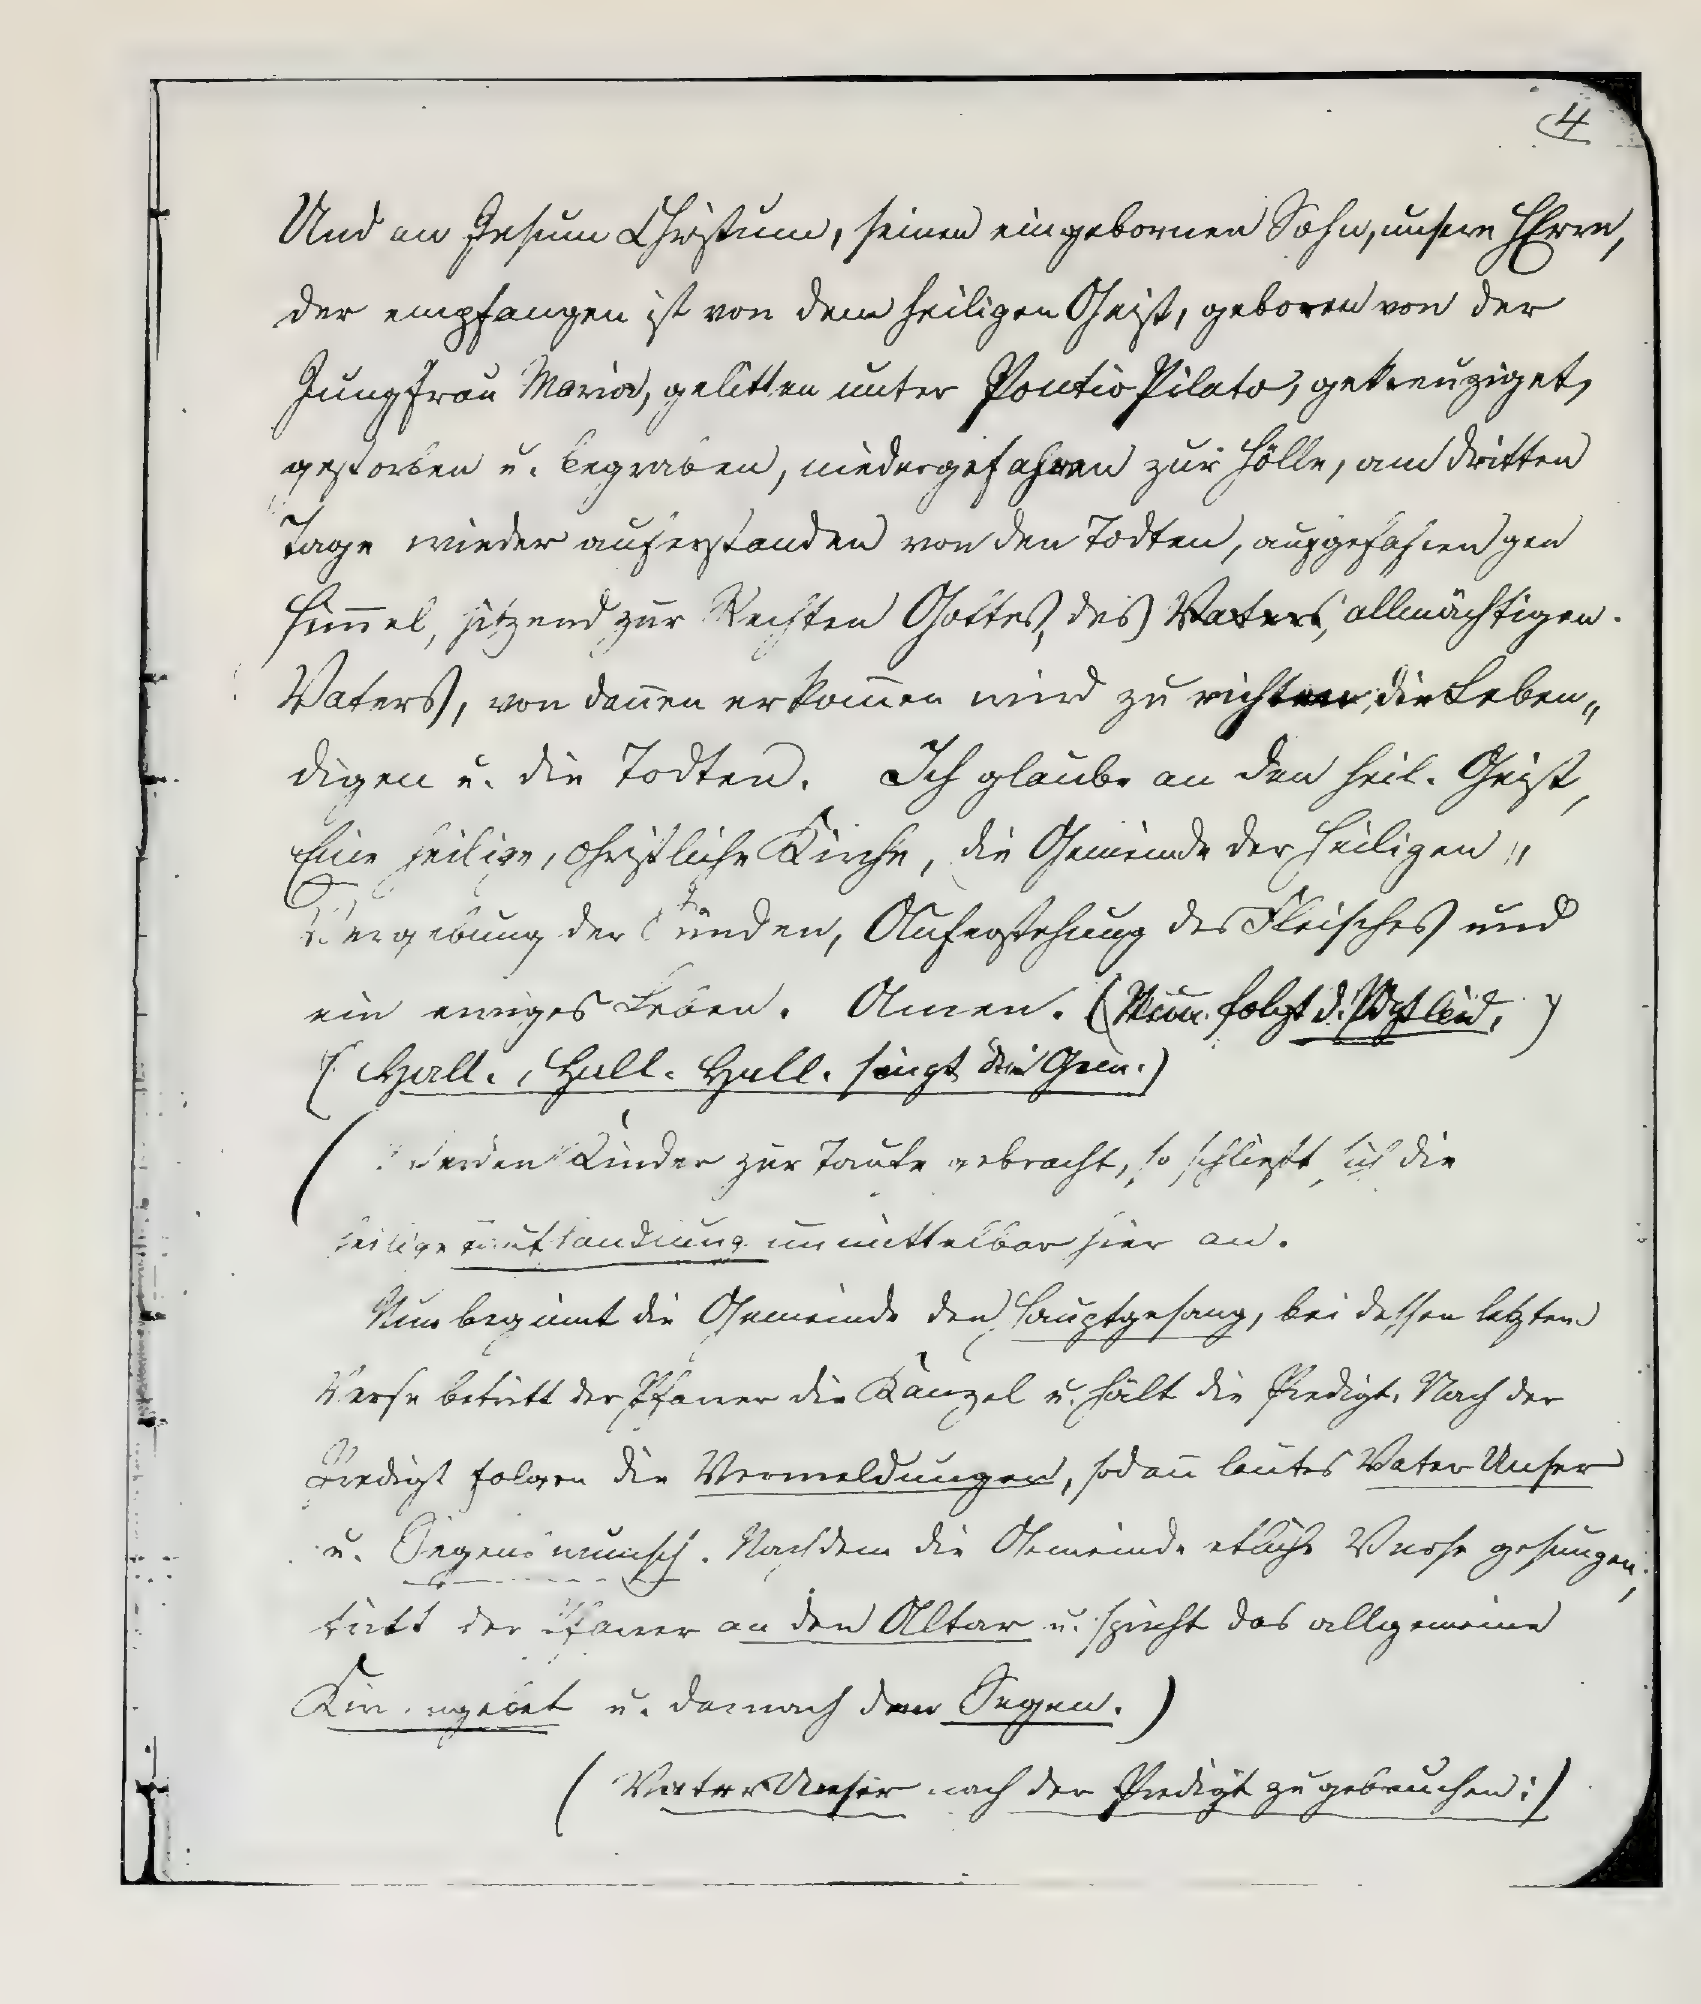 4
Und an Jesum Christum, seinen eingebornen Sohn, unsern HErrn,
der empfangen ist von dem heiligen Geist, geboren von der
Jungfrau Maria, gelitten unter Pontio Pilato, gekreuziget,
gestorben u. begraben, niedergefahren zur Hölle, am dritten
Tage wieder auferstanden von den Todten, aufgefahren gen
Him̄el, sitzend zur Rechten Gottes, des Vaters, allmächtigen
Vaters, von dan̄en er kom̄en wird zu richten die Leben„
digen u. die Todten. Ich glaube an den heil. Geist,
Eine heilige, christliche Kirche, die Gemeinde der Heiligen„
Vergebung der Sünden, Auferstehung des Fleisches und
ein ewiges Leben. Amen. (Nun folgt d.
(Hall., Hall. Hall. singt die Gem.)
(Werden Kinder zur Taufe gebracht, so schließt sich die
heilige Taufhandlung unmittelbar hier an.
Nun beginnt die Gemeinde den Hauptgesang, bei dessen letzten
Verse betritt der Pfarrer die Kanzel u. hält die Predigt. Nach der
Predigt folgen die Vermeldungen, sodan̄ lautes Vater Unser
u. Segenswunsch. Nachdem die Gemeinde etliche Verse gesungen,
tritt der Pfarrer an den Altar u. spricht das allgemeine
Kirchengebet u. darnach den Segen.)
(Vater Unser nach der Predigt zu gebrauchen:)